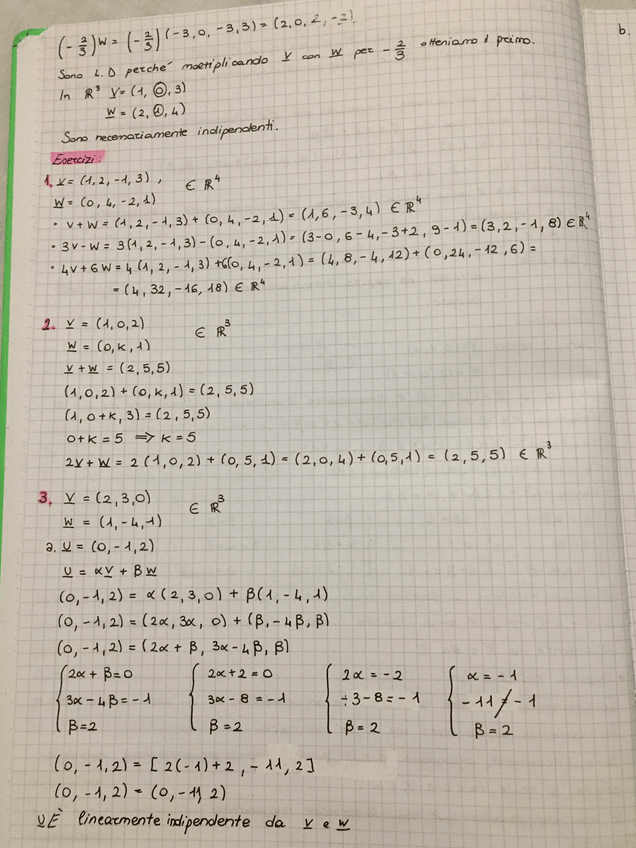 (-2/3)W = (-2/3)(-3,0,-3,3) = (2,0,2,-2).
Sono L.D perché moltiplicando V con W per -2/3 otteniamo il primo.
In ℝ³ V = (1, 0, 3)
W = (2, 1, 4)
Sono necessariamente indipendenti.
Esercizi:
1. V = (1, 2, -1, 3), ∈ ℝ⁴
W = (0, 4, -2, 1)
• V+W = (1,2,-1,3) + (0,4,-2,1) = (1,6,-3,4) ∈ ℝ⁴
• 3V-W = 3(1,2,-1,3) - (0,4,-2,1) = (3-0, 6-4, -3+2, 9-1) = (3,2,-1,8) ∈ ℝ⁴
• 4V+6W = 4(1,2,-1,3) + 6(0,4,-2,1) = (4,8,-4,12) + (0,24,-12,6) =
= (4, 32, -16, 18) ∈ ℝ⁴
2. V = (1,0,2) ∈ ℝ³
W = (0,K,1)
V+W = (2,5,5)
(1,0,2) + (0,K,1) = (2,5,5)
(1, 0+K, 3) = (2,5,5)
0+K = 5 ⟹ K = 5
2V+W = 2(1,0,2) + (0,5,1) = (2,0,4) + (0,5,1) = (2,5,5) ∈ ℝ³
3. V = (2,3,0) ∈ ℝ³
W = (1,-4,1)
a. U = (0,-1,2)
U = αV + βW
(0,-1,2) = α(2,3,0) + β(1,-4,1)
(0,-1,2) = (2α, 3α, 0) + (β, -4β, β)
(0,-1,2) = (2α + β, 3α - 4β, β)
2α + β = 0 2α + 2 = 0 2α = -2 α = -1
3α - 4β = -1 3α - 8 = -1 -3 - 8 = -1 -11 ≠ -1
β = 2 β = 2 β = 2 β = 2
(0,-1,2) = [2(-1)+2, -11, 2]
(0,-1,2) = (0,-11,2)
U È linearmente indipendente da V e W
b.